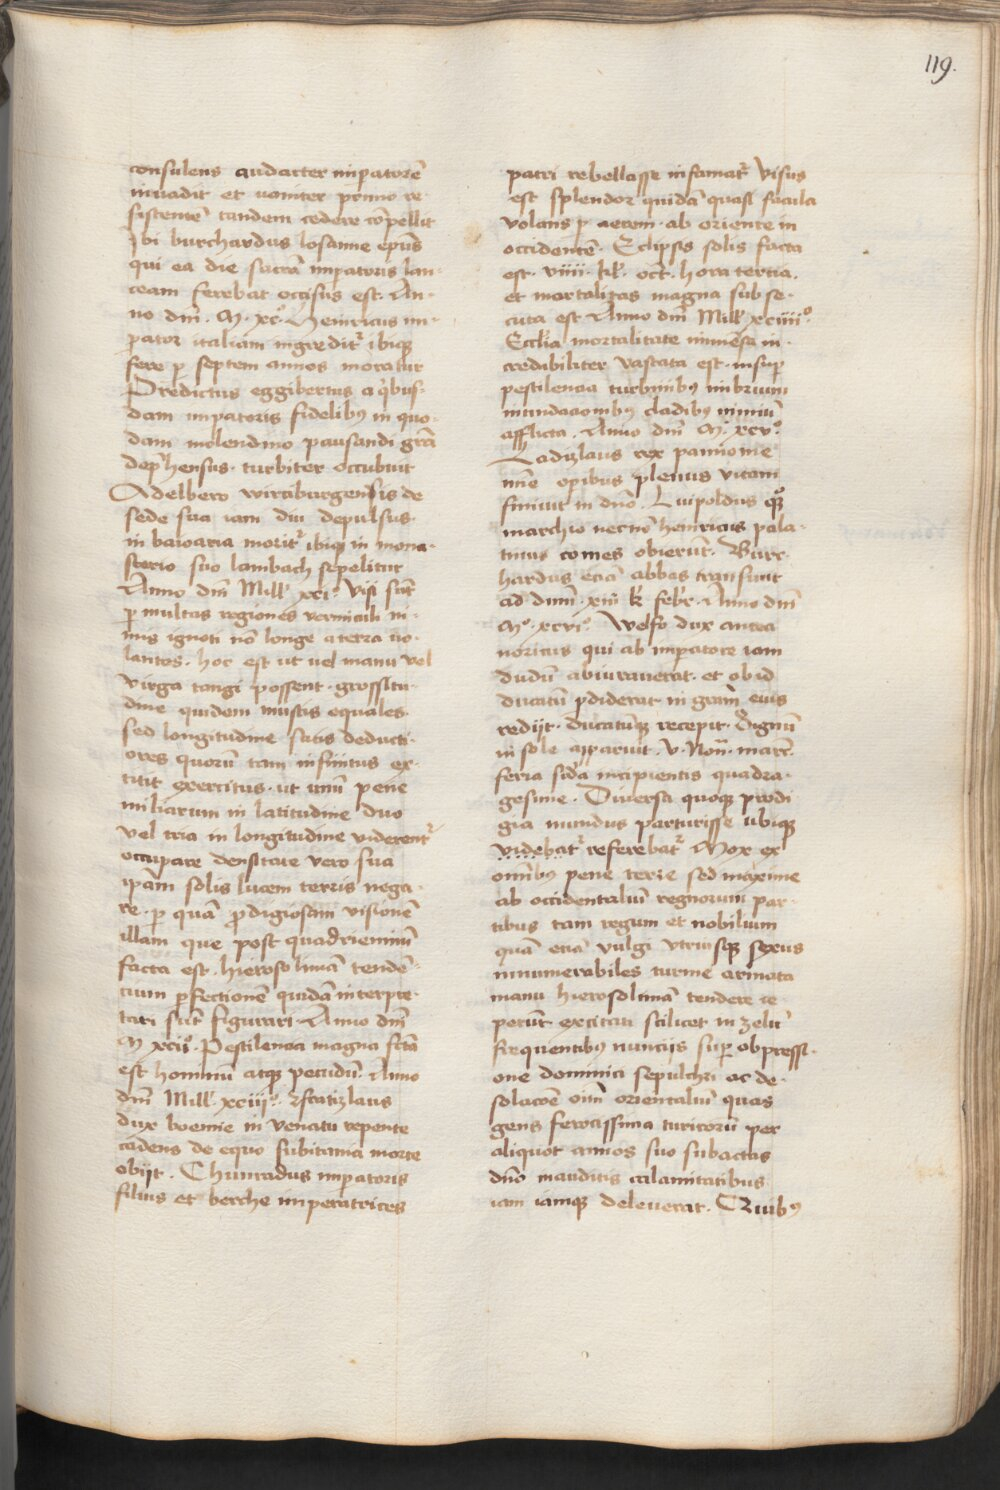 119.
consulens audacter imꝑatorē
inuadit et uoniter primo re
sistentē tandem cedere cōpellit
Ibi burchardus losanne epūs
qui ea die sacrā imꝑatoris lan
ceam ferebat occisus est. An
no dm̄. M. xc.º Heinricus im
ꝑator italiam ingredit᷑ ibiqꝫ
fere ꝑ septem annos moratur
Predictus eggibertus a qͥbus
dam imꝑatoris fidelibꝰ in quo
dam molendino pausandi grā
depͬhensus. turbiter occubuit
Adelbero wirtzburgensis de
sede sua iam diu depulsus
in baioaria morit᷑ ibiqꝫ in mona
sterio suo lambach sepelitur
Anno dm̄ Mill̄ xci.º visi sūt
ꝑ multas regiones vermiculi ni
mis ignoti nō longe a terra uo
lantes. hoc est ut uel manu vel
virga tangi possent. grossitu
dine quidem muscis equales.
sed longitudine satis deducti
ores quorū tam infinitus ex
titit exercitus. ut unū pene
miliarum in latitudine duo
vel tria in longitudine viderent᷑
occupare densitate vero sua
ipām solis lucem terris nega
re. ꝑ quā ꝓdigiosam visionē
illam que post quadrienniū
facta est. hierosolimā tendē
cium ꝓfectionē quidā interpre
tari sūt figurari. Anno dm̄
M xcii.º Pestilencia magna fctā
est hominū atqꝫ pecudū. Anno
dm̄ Mill̄ xciii.º Vratizlaus
dux boemie in venatu repente
cadens de equo subitania morte
obijt. Chunradus imꝑatoris
filius et berche imperatrices
patri rebellasse infamat᷑ visus
est splendor quidā quasi facula
volans ꝑ aerem. ab oriente in
occidentē. Eclipsis solis facta
est. viiii. kl̄. oct̄. hora tertia.
et mortalitas magna subse
cuta est Anno dm̄ Mill̄ xciiii.º
Eccl̄ia mortalitate inmēsa in
credibiliter vastata est. insuꝑ
pestilencia turbinibꝰ imbrium
inundacionibꝰ cladibꝰ nimiū
afflicta. Anno dm̄ M.º xcv.º
Ladizlaus rex pannonie
opibus plenus vitam
finiuit in dnō. Luipoldus qͦꝫ
marchio necnō heinricus pala
tinus comes obierūt. Burc
hardus eciā abbas transiuit
ad dnm̄. xiii k̄ febr̄. Anno dm̄
M.º xcvi.º Welfo dux antea
noricus qui ab imꝑatore iam
dudū abiurauerat. et ob id
ducatū ꝑdiderat in grām̄ eius
redijt. ducatūqꝫ recepit. Signū
in sole apparuit. v. Non̄. marc̄.
feria sc̄da incipientis quadra
gesime. Diuersa quoqꝫ prodi
gia mundus parturisse ubiqꝫ
videbat᷑ referebat᷑ Mox ex
omībꝰ pene terre sed maxime
ab occidentaliū regnorum par
tibus tam regum et nobilium
quā eciā vulgi vtriusqꝫ sexus
innumerabiles turme armata
manu hierosolimā tendere ce
perūt. excitati scilicet in zelū
frequentibꝰ nuncijs suꝑ obpressi
one dominici sepulchri ac de
solacōē oīm orientaliū quas
gens ferocissima turicorū per
aliquot annos suo subactas
dn̄o inauditis calamitatibus
iam iamqꝫ deleuerat. Quibꝰ